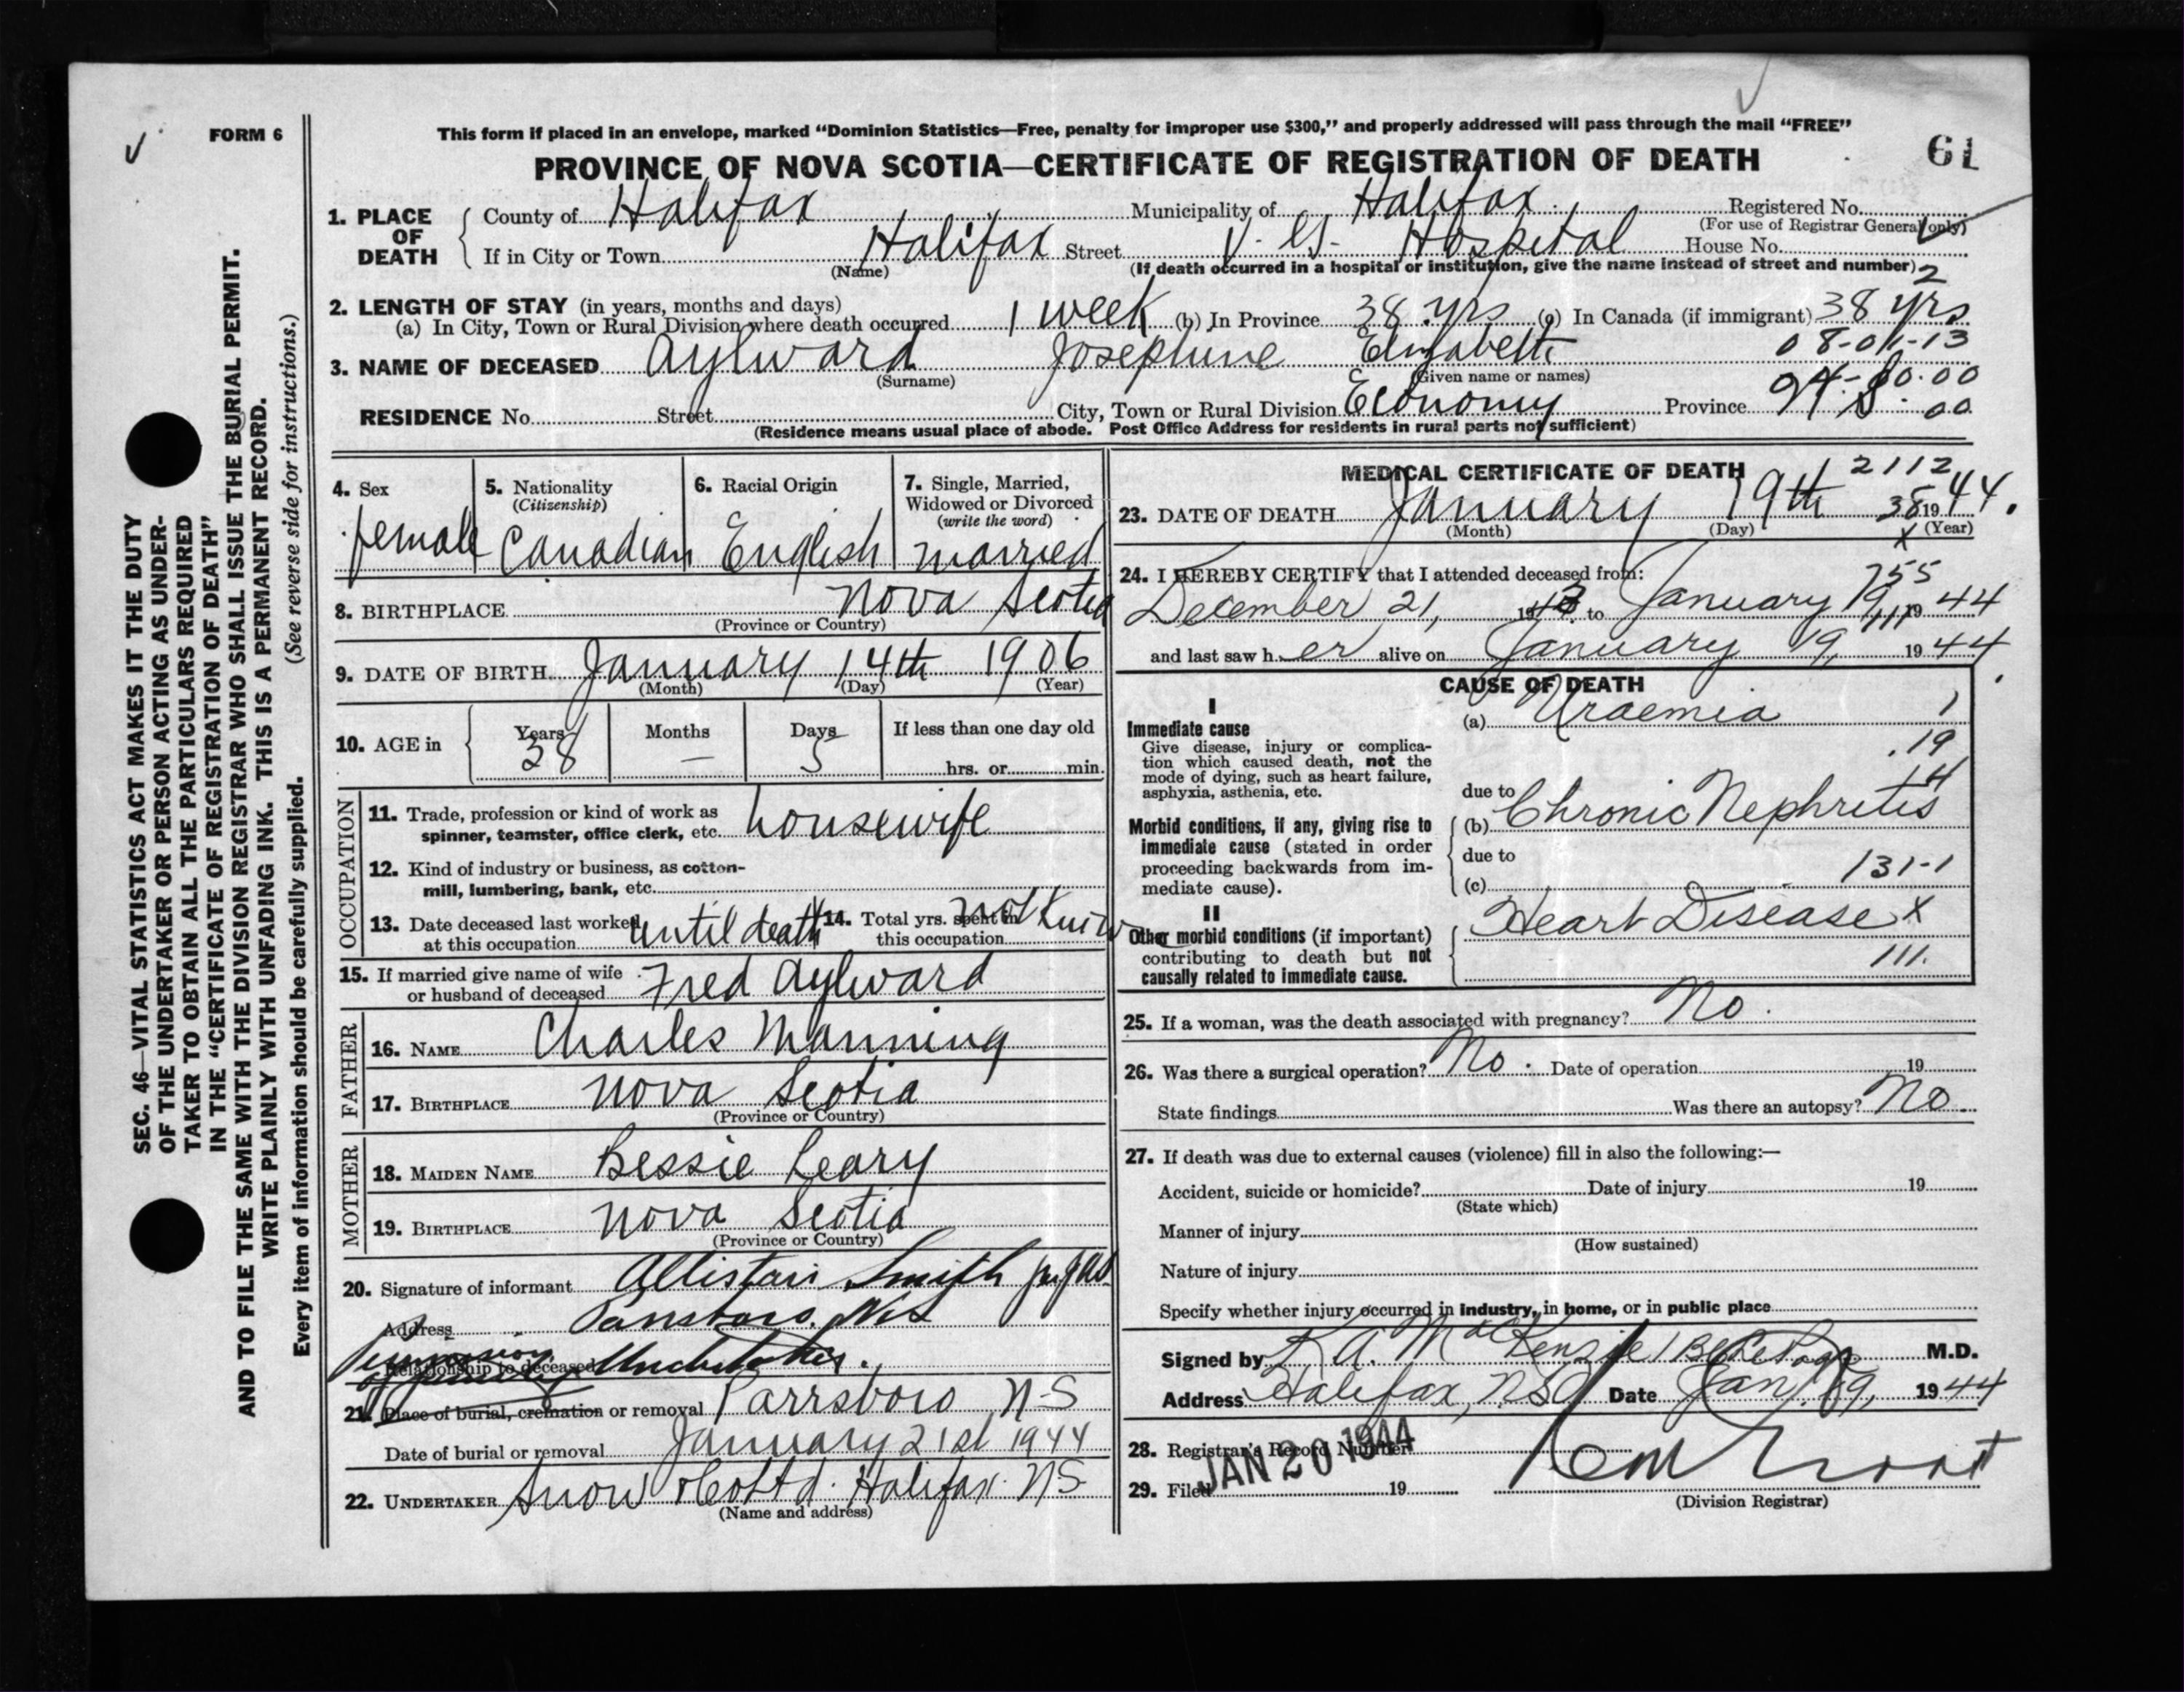 FORM 6
This form if placed in an envelope, marked “Dominion Statistics—Free, penalty for improper use $300,” and properly addressed will pass through the mail “FREE”
PROVINCE OF NOVA SCOTIA—CERTIFICATE OF REGISTRATION OF DEATH
61
SEC. 46—VITAL STATISTICS ACT MAKES IT THE DUTY
OF THE UNDERTAKER OR PERSON ACTING AS UNDER-
TAKER TO OBTAIN ALL THE PARTICULARS REQUIRED
IN THE “CERTIFICATE OF REGISTRATION OF DEATH”
AND TO FILE THE SAME WITH THE DIVISION REGISTRAR WHO SHALL ISSUE THE BURIAL PERMIT.
WRITE PLAINLY WITH UNFADING INK. THIS IS A PERMANENT RECORD.
(See reverse side for instructions.)
Every item of information should be carefully supplied.
1. PLACE OF DEATH
County of Halifax Municipality of Halifax Registered No.
(For use of Registrar General only)
If in City or Town Halifax Street V. G. Hospital House No.
(Name) (If death occurred in a hospital or institution, give the name instead of street and number)
2
2. LENGTH OF STAY (in years, months and days)
(a) In City, Town or Rural Division where death occurred 1 week (b) In Province 38 yrs (c) In Canada (if immigrant) 38 yrs
3. NAME OF DECEASED Aylward Josephine Elizabeth
(Surname) (Given name or names)
RESIDENCE No. Street City, Town or Rural Division Economy Province N.S.
00
(Residence means usual place of abode. Post Office Address for residents in rural parts not sufficient)
4. Sex female
5. Nationality (Citizenship) Canadian
6. Racial Origin English
7. Single, Married, Widowed or Divorced (write the word) married
8. BIRTHPLACE Nova Scotia
(Province or Country)
9. DATE OF BIRTH January 14th 1906
(Month) (Day) (Year)
10. AGE in Years 38 Months — Days 5 If less than one day old
hrs. or min.
OCCUPATION
11. Trade, profession or kind of work as
spinner, teamster, office clerk, etc. housewife
12. Kind of industry or business, as cotton-
mill, lumbering, bank, etc.
13. Date deceased last worked at this occupation until death 14. Total yrs. spent in this occupation not
15. If married give name of wife
or husband of deceased Fred Aylward
FATHER
16. NAME Charles Manning
17. BIRTHPLACE Nova Scotia
(Province or Country)
MOTHER
18. MAIDEN NAME Bessie Leary
19. BIRTHPLACE Nova Scotia
(Province or Country)
20. Signature of informant Allistair Smith
Address Parrsboro, N.S.
Relationship to deceased Undertaker.
21. Place of burial, cremation or removal Parrsboro N-S
Date of burial or removal January 21st 1944
22. UNDERTAKER Snow & Co Ltd. Halifax NS
(Name and address)
MEDICAL CERTIFICATE OF DEATH
2112
23. DATE OF DEATH January 19th 38 1944.
(Month) (Day) (Year)
x
24. I HEREBY CERTIFY that I attended deceased from:
755
December 21, 1943 to January 19, 1944
and last saw her alive on January 19, 1944
CAUSE OF DEATH
I
Immediate cause
Give disease, injury or complica-
tion which caused death, not the
mode of dying, such as heart failure,
asphyxia, asthenia, etc.
(a) Uraemia 1
.19
14
due to
Morbid conditions, if any, giving rise to
immediate cause (stated in order
proceeding backwards from im-
mediate cause).
(b) Chronic Nephritis
due to
(c) 131-1
II
Other morbid conditions (if important)
contributing to death but not
causally related to immediate cause.
Heart Disease x
111.
25. If a woman, was the death associated with pregnancy? No.
26. Was there a surgical operation? No. Date of operation 19
State findings Was there an autopsy? No
27. If death was due to external causes (violence) fill in also the following:—
Accident, suicide or homicide? Date of injury 19
(State which)
Manner of injury
(How sustained)
Nature of injury
Specify whether injury occurred in industry, in home, or in public place
Signed by K. A. MacKenzie M.D.
Address Halifax, N.S. Date Jan. 19, 1944
28. Registrar's Record Number
JAN 20 1944
29. Filed 19
(Division Registrar)